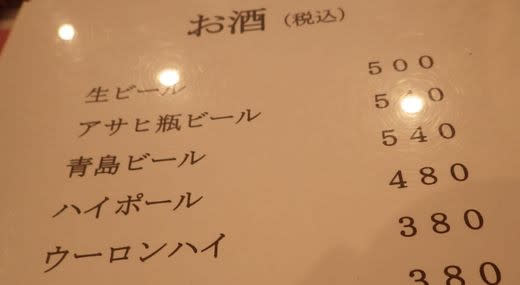 お酒（税込）
生ビール 500
アサヒ瓶ビール 540
青島ビール 540
ハイポール 480
ウーロンハイ 380
380